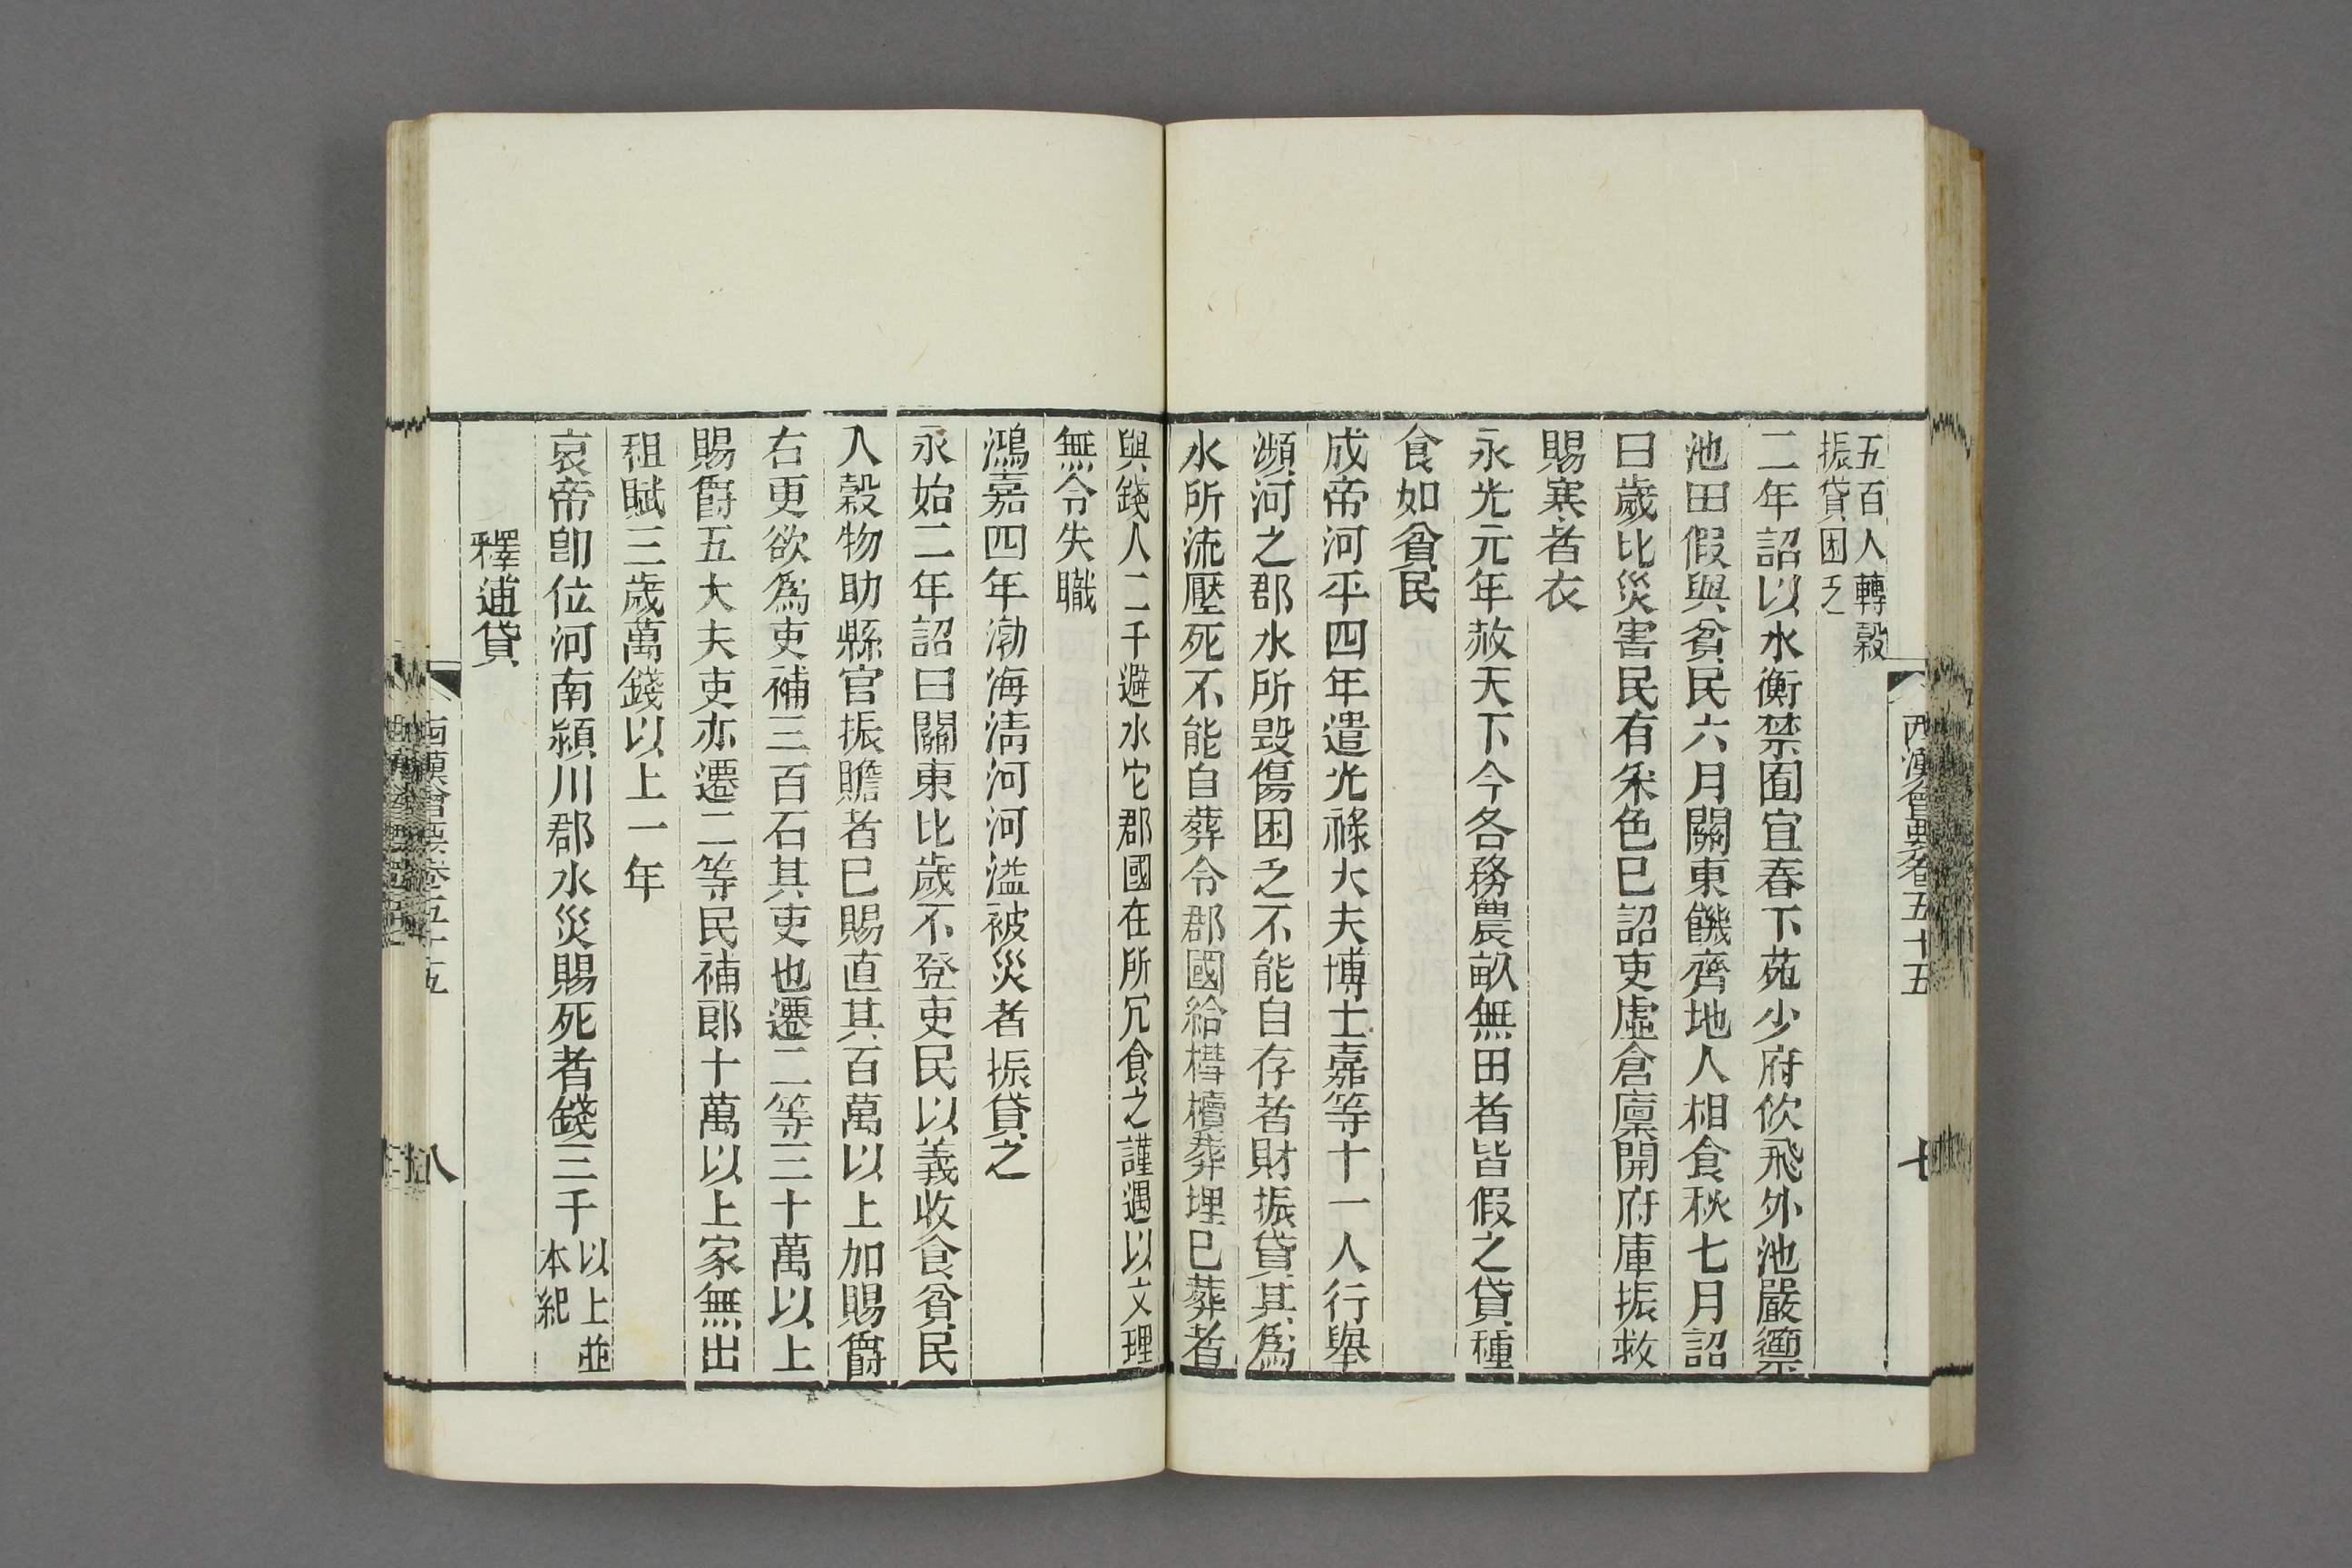 西漢會要卷五十五
七
五百人轉穀
振貸困乏
二年詔以水衡禁囿宜春下苑少府佽飛外池嚴籞
池田假與貧民六月關東饑齊地人相食秋七月詔
曰歲比災害民有菜色已詔吏虛倉廩開府庫振救
賜寒者衣
永光元年赦天下令各務農畝無田者皆假之貸種
食如貧民
成帝河平四年遣光祿大夫博士嘉等十一人行舉
瀕河之郡水所毀傷困乏不能自存者財振貸其爲
水所流壓死不能自葬令郡國給槥櫝葬埋已葬者
與錢人二千避水它郡國在所冗食之謹遇以文理
無令失職
鴻嘉四年渤海淸河河溢被災者振貸之
永始二年詔曰關東比歲不登吏民以義收食貧民
入穀物助縣官振贍者已賜直其百萬以上加賜爵
右更欲爲吏補三百石其吏也遷二等三十萬以上
賜爵五大夫吏亦遷二等民補郎十萬以上家無出
租賦三歲萬錢以上一年
哀帝卽位河南潁川郡水災賜死者錢三千以上並
本紀
釋逋貸
西漢會要卷五十五
八